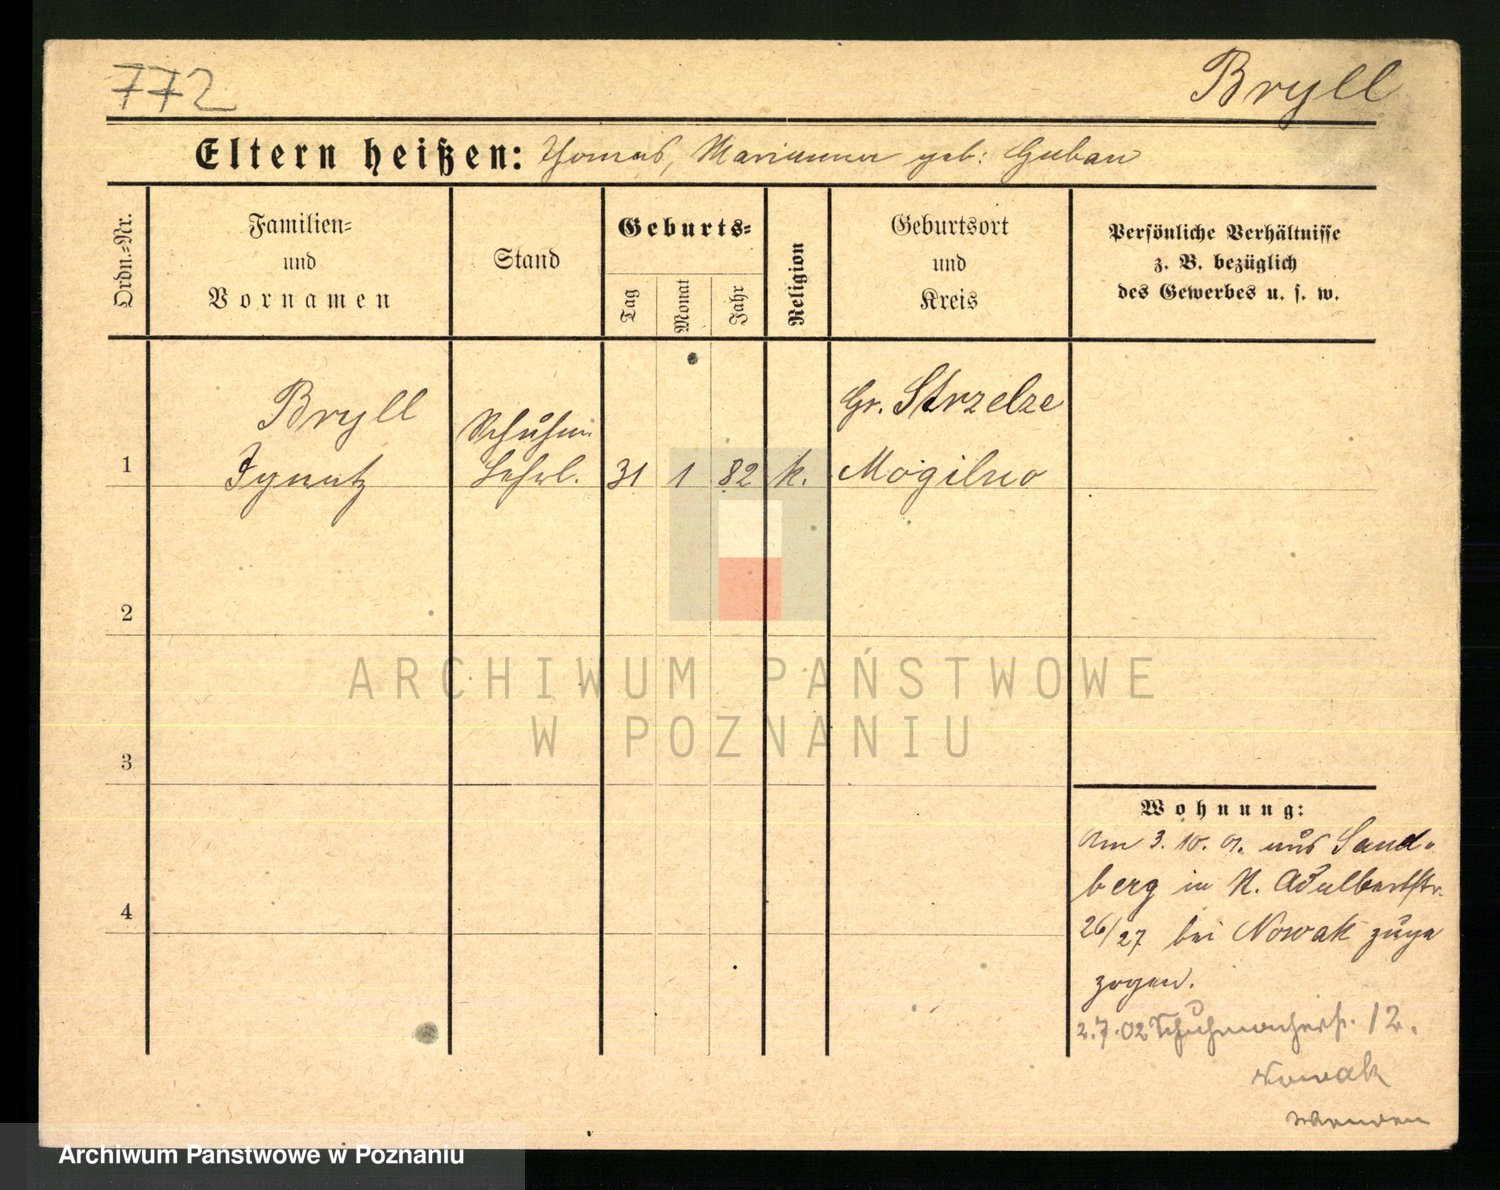 772
Bryll
Eltern heißen: Thomas, Marianna geb: Guban
Ordn.=Nr.
Familien=
und
Vornamen
Stand
Geburts=
Tag
Monat
Jahr
Religion
Geburtsort
und
Kreis
Persönliche Verhältnisse
z. B. bezüglich
des Gewerbes u. s. w.
1
Bryll
Ignatz
Schuhm.
Lehrl.
31
1
82
k.
Gr. Strzelze
Mogilno
2
3
4
Wohnung:
Am 3. 10. 01. aus Sand-
berg in N. Adalbertstr.
26/27 bei Nowak zuge
zogen.
2.7.02 Schuhmacherstr. 12.
Nowak
Wenden
ARCHIWUM PAŃSTWOWE
W POZNANIU
Archiwum Państwowe w Poznaniu